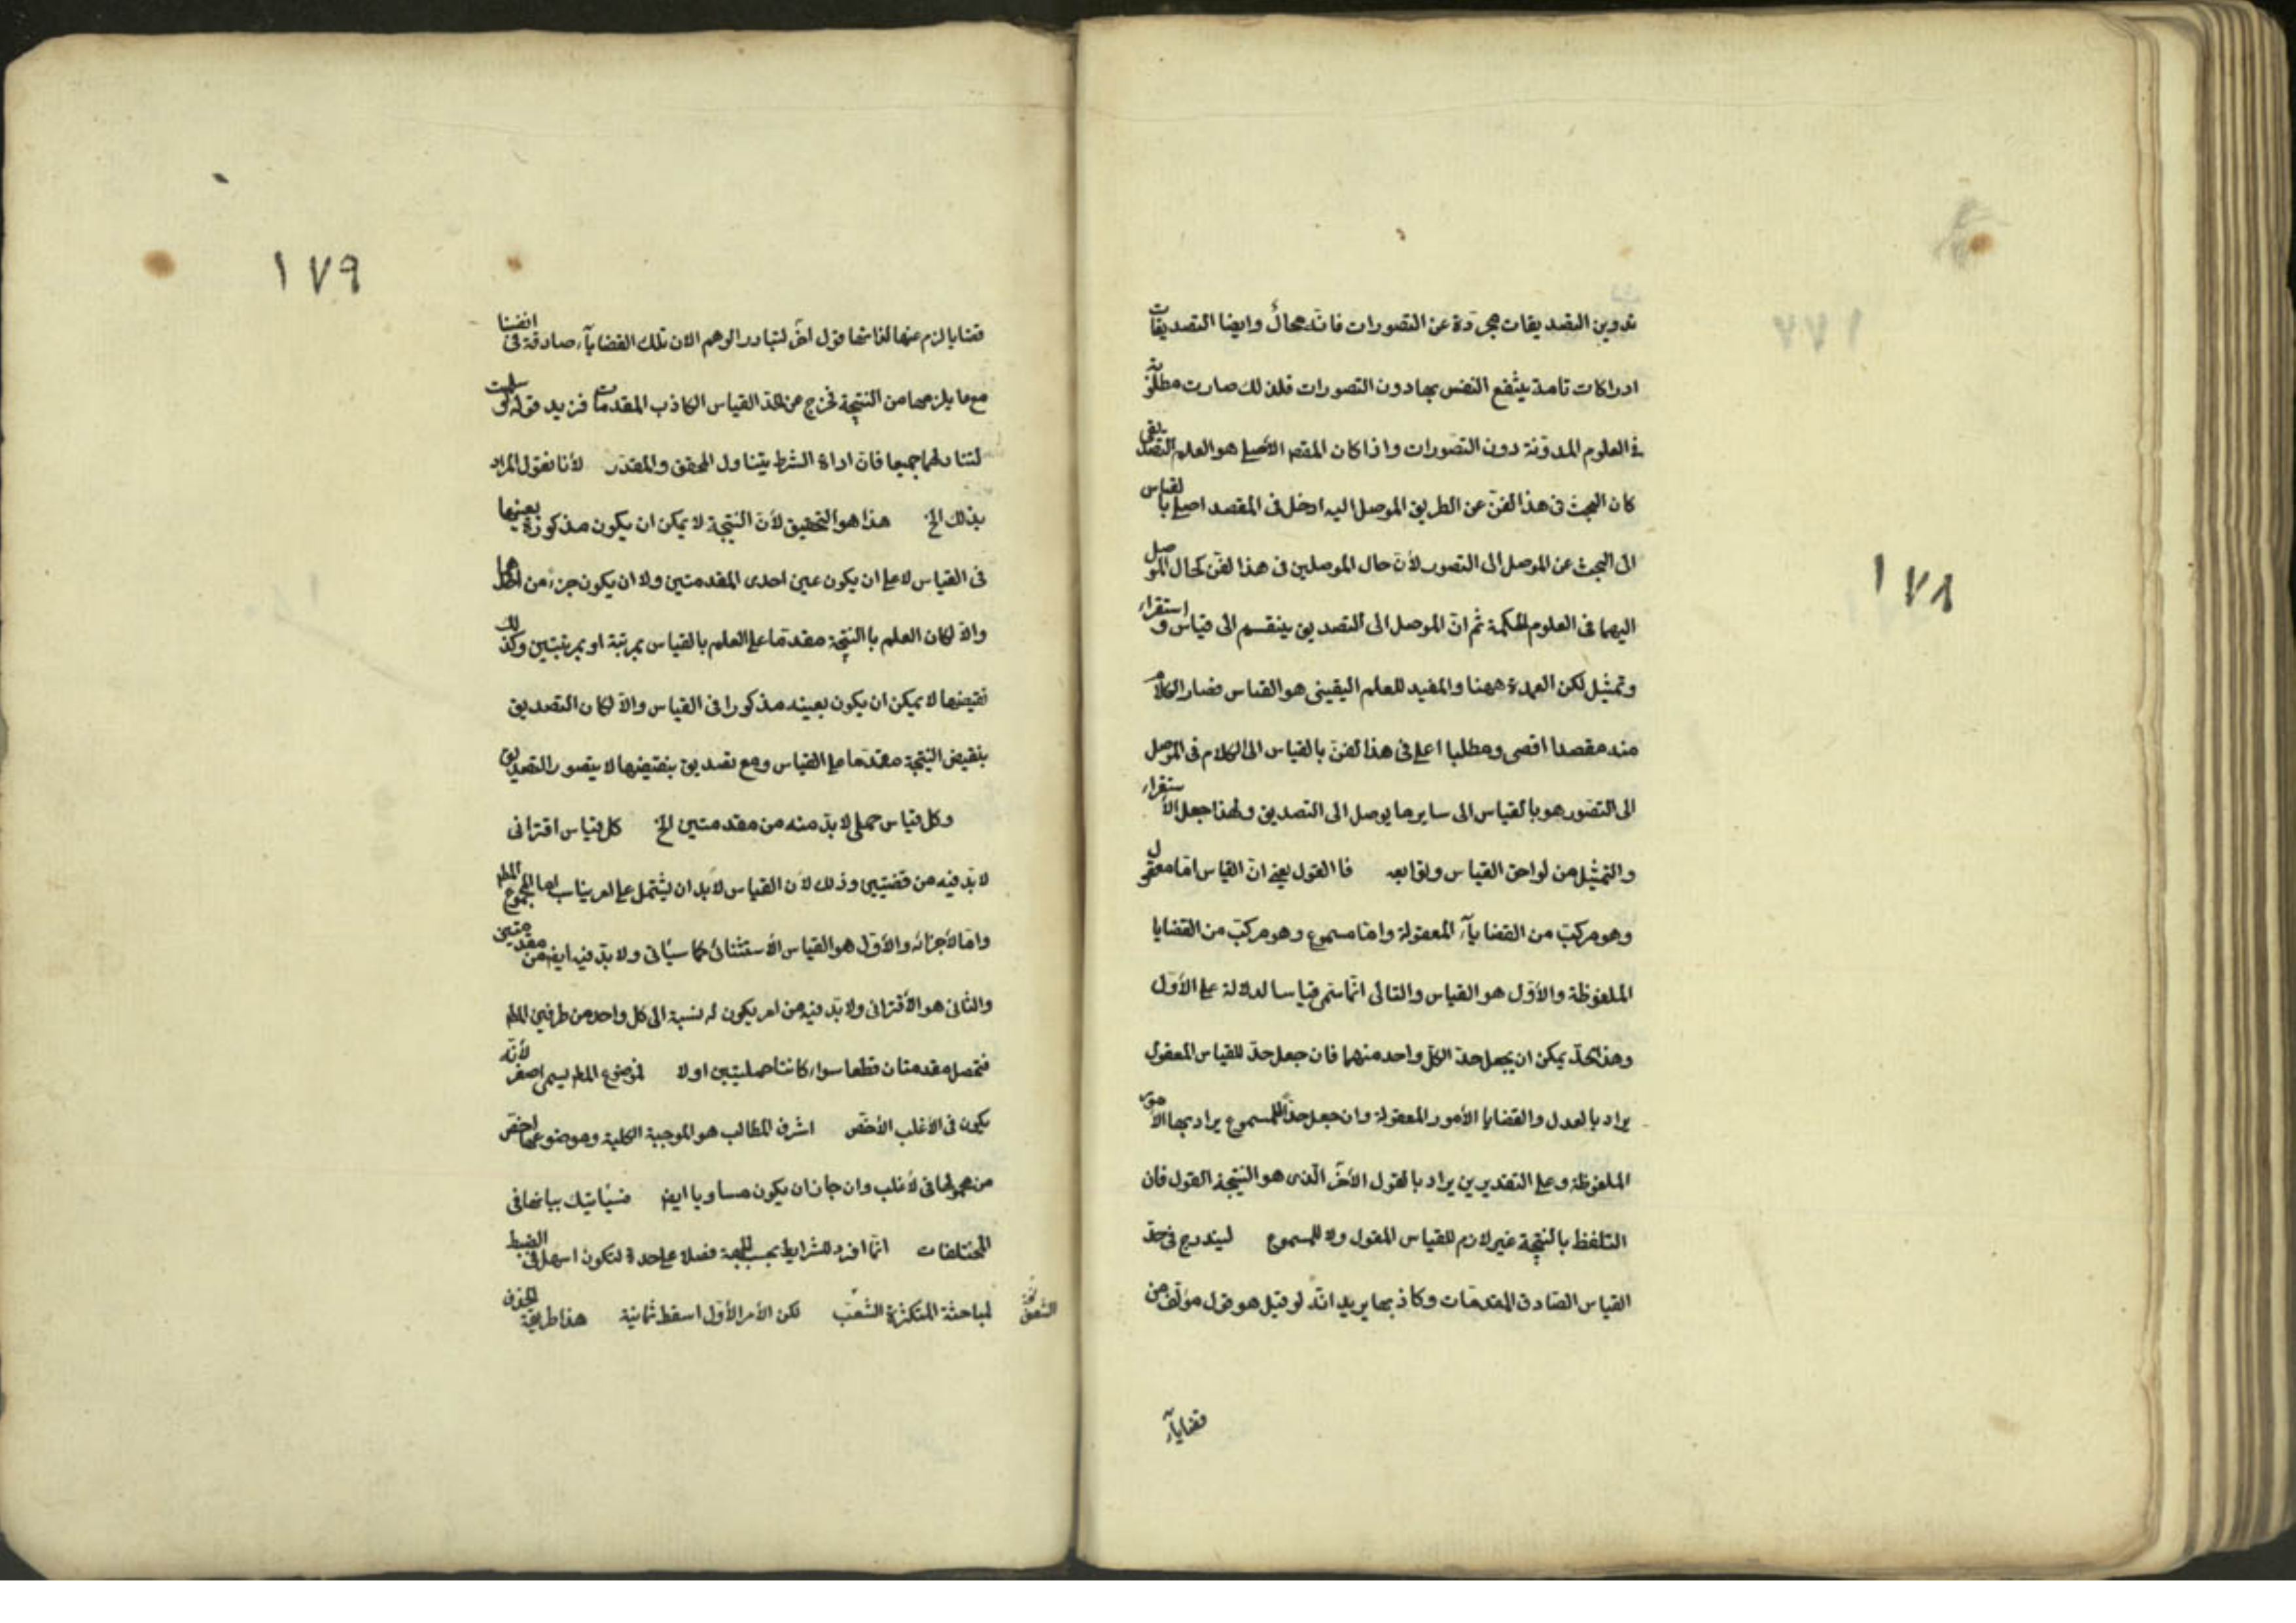 ١٧٨
تدوين التصديقات مجردة عن التصورات فانّه محالٌ وايضا التصديقات
ادراكات تامة ينتفع النفس بها دون التصورات فلذلك صارت مطلوبة
في العلوم المدوّنة دون التصورات واذا كان المقصد الأصلي هو العلم التصديقى
كان البحث في هذا الفنّ عن الطريق الموصل اليه ادخل في المقصد اصلي بالقياس
الى البحث عن الموصل الى التصور لأن حال الموصلين في هذا لفنّ كحال الموصل
اليهما في العلوم الحكمية ثم انّ الموصل الى التصديق ينقسم الى قياس واستقراء
وتمثيل لكن العمدة ههنا والمفيد للعلم اليقينى هو القياس فصار الكلام
منه مقصدا اقصى ومطلبا اعلى في هذا لفنّ بالقياس الى الكلام في الموصل
الى التصور هو بالقياس الى ساير ما يوصل الى التصديق ولهذا جعل الأستقراء
والتمثيل من لواحق القياس وتوابعه فا القول يعني انّ القياس امّا معقول
وهو مركّب من القضايآء المعقولة وامّا مسموع وهو مركّب من القضايا
الملفوظة والأوّل هو القياس والثانى انّما سمّى قياسا لدلالة على الأوّل
وهذا لحدّ يمكن ان يجعل حدّ الكلّ واحد منهما فان جعل حدّ للقياس المعقول
يراد بالقول والقضايا الأمور المعقولة وان جعل حدّاً للمسموع يراد بها الأمور
الملفوظة وعلى التقديرين يراد بالقول الأخر الّذى هو النتيجة القول فان
التلفظ بالنتيجة غير لازم للقياس المقول ولا للمسموع ليندرج في حدّ
القياس الصّادق المقدمات وكاذبها يريد انّه لو قيل هو قول مؤلّف من
قضايآء
١٧٩
قضايا لزم عنها لذاتها قول اخر لتبادر الوهم الان تلك القضايآء صادقة في انفسنا
مع ما يلزمها من النتيجة تخرج عن الحدّ القياس الكاذب المقدمات فزيد قوله لو سلمت
لتناولهما جميعا فانّ اداة الشرط يتناول المحقق والمقدّر لأنا نقول المراد
بذلك الخ هذا هو التحقيق لأنّ النتيجة لا يمكن ان يكون مذكورة بعينها
في القياس لا على ان يكون عين احدى المقدمتين ولا ان يكون جزء من احدهما
والّا لكان العلم با النتيجة مقدّما على العلم بالقياس بمرتبة او بمرتبتين وكذلك
نقيضها لا يمكن ان يكون بعينه مذكورا في القياس والّا لكان التصديق
بنقيض النتيجة مقدّما على القياس ومع تصديق بنقيضها لا يتصور التصديق
وكل قياس حملى لابدّ منه من مقدمتين الخ كل قياس اقترانى
لابدّ فيه من قضيتين وذلك لأن القياس لابد ان يشتمل على امر يناسب اما لمجموع المطلـ
وامّا لأجزائه والأوّل هو القياس الأستثنائى كما سيأتى ولابدّ فيه ايضـ من مقدمتين
والثانى هو الأقترانى ولابدّ فيه من امر يكون له نسبة الى كل واحد من طرفين المطلـ
فتحصل مقدمتان قطعا سواء كانتا حمليتين اولا لموضوع المطلـ يسمى اصغر لأنّه
يكون في الأغلب الأخصّ اشرف المطالب هو الموجبة الكلية وموضوعها اخصّ
من محمولها في لأغلب وان جاز ان يكون مساويا ايضـ فسيأتيك بيانها في
المختلطات انّما افرد للشرايط بحسب الجهة فصلا على حدة لتكون اسهل في الضبط
لمباحثة المتكثرة الشعب لكن الأمر الأوّل اسقط ثمانية هذا طريقة الحذف